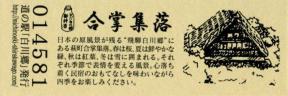 014581
道の駅「飛騨白川郷」発行
合掌集落
日本の原風景が残る“飛騨白川郷”に
ある荻町合掌集落。春は桜、夏は鮮やかな
緑、秋は紅葉、冬は雪に囲まれる、それ
ぞれ季節で表情を変える風景、心落ち
着く民宿のおもてなしを味わいながら
四季をお楽しみください。